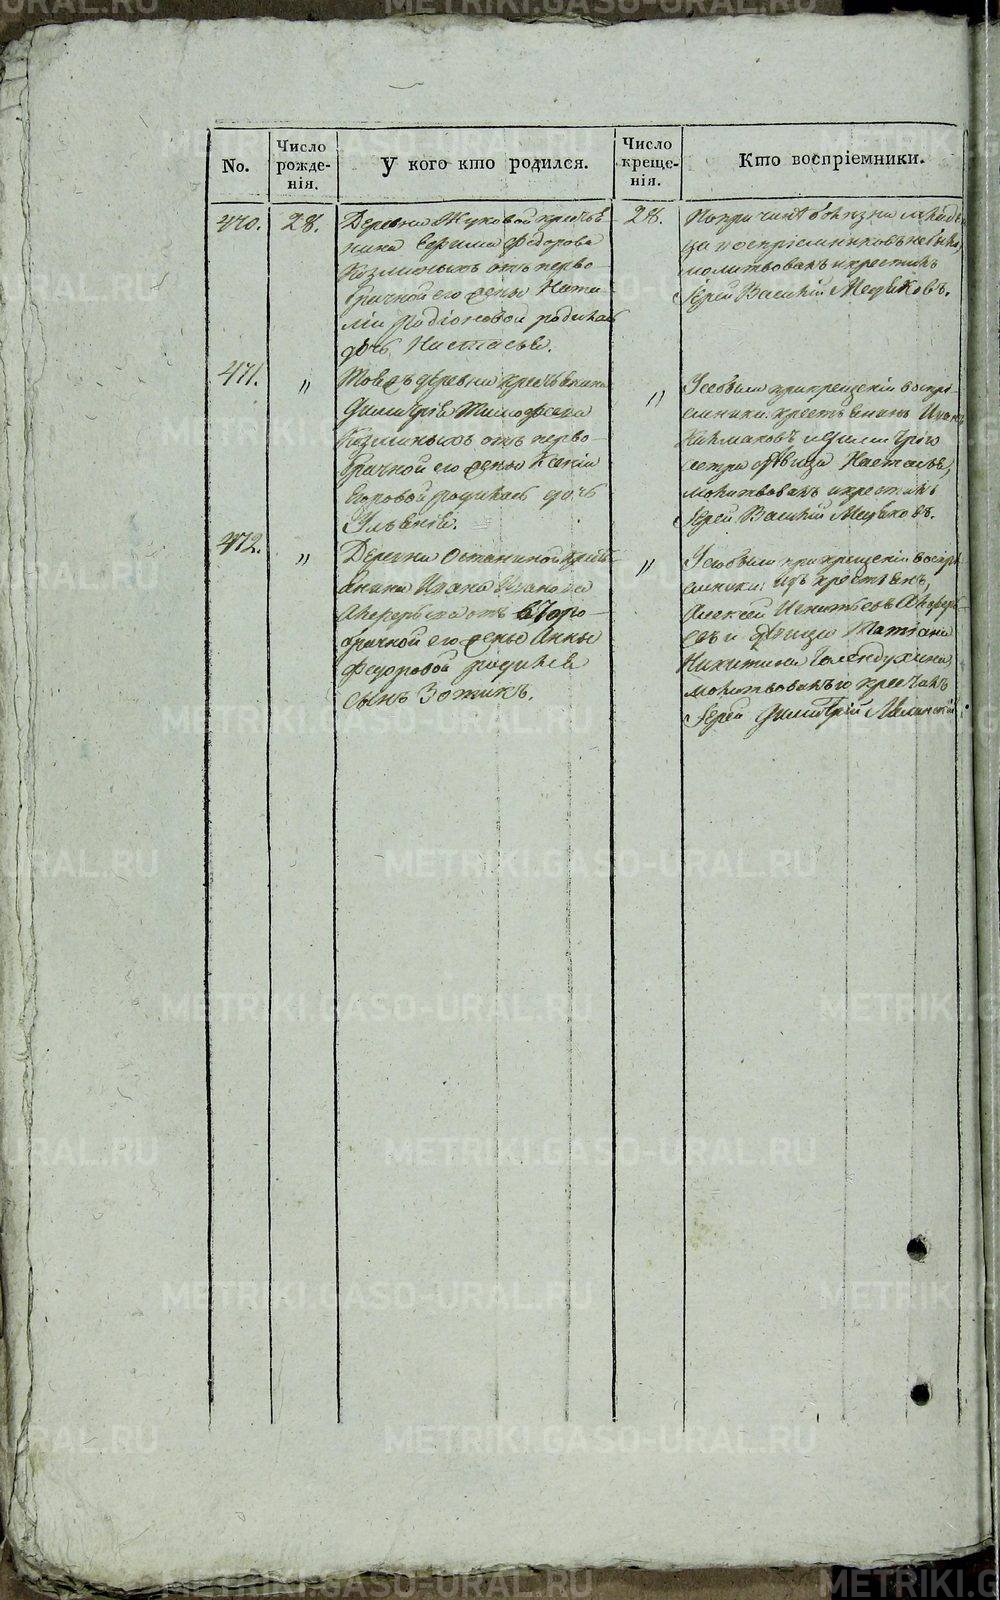 No.
Число рожде-нія.
У кого кто родился.
Число креще-нія.
Кто воспріемники.
470.
28.
Деревни Жуковой крестья
нина Ефима Федорова
Козминыхъ отъ перво-
брачной его жены Ната
ліи Родіоновой родилась
дочь Настасья.
28.
По причине болезни младен
ца воспріемниковъ не было,
молитвовалъ и крестилъ
Іерей Василій
471.
"
Тоежъ деревни крестьянина
Димитрія Тимофеева
Козминыхъ отъ перво-
брачной его жены Ксеніи
Егоровой родилась дочь
Ульянія.
"
У сей были при крещеніи воспрі-
емники: крестьянинъ Иванъ
и Димитрія
сестра девица Настасья,
молитвовалъ и крестилъ
Іерей Василій
472.
"
Деревни Останиной кресть
янина Ивана Иванова
отъ второ-
брачной его жены Анны
Федоровой родился
сынъ Зотикъ.
"
У сего были при крещеніи воспрі
емники: изъ крестьянъ,
Алексей
и девица Татіана
Никитина Голендухина,
молитвовалъ и крестилъ
Іерей Димитрій
METRIKI.GASO-URAL.RU